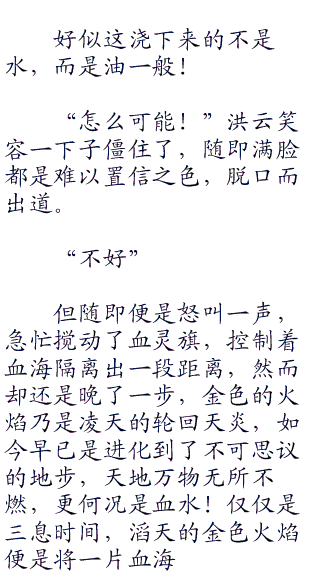 好似这浇下来的不是
水，而是油一般！
“怎么可能！”洪云笑
容一下子僵住了，随即满脸
都是难以置信之色，脱口而
出道。
“不好”
但随即便是怒叫一声，
急忙搅动了血灵旗，控制着
血海隔离出一段距离，然而
却还是晚了一步，金色的火
焰乃是凌天的轮回天炎，如
今早已是进化到了不可思议
的地步，天地万物无所不
燃，更何况是血水！仅仅是
三息时间，滔天的金色火焰
便是将一片血海